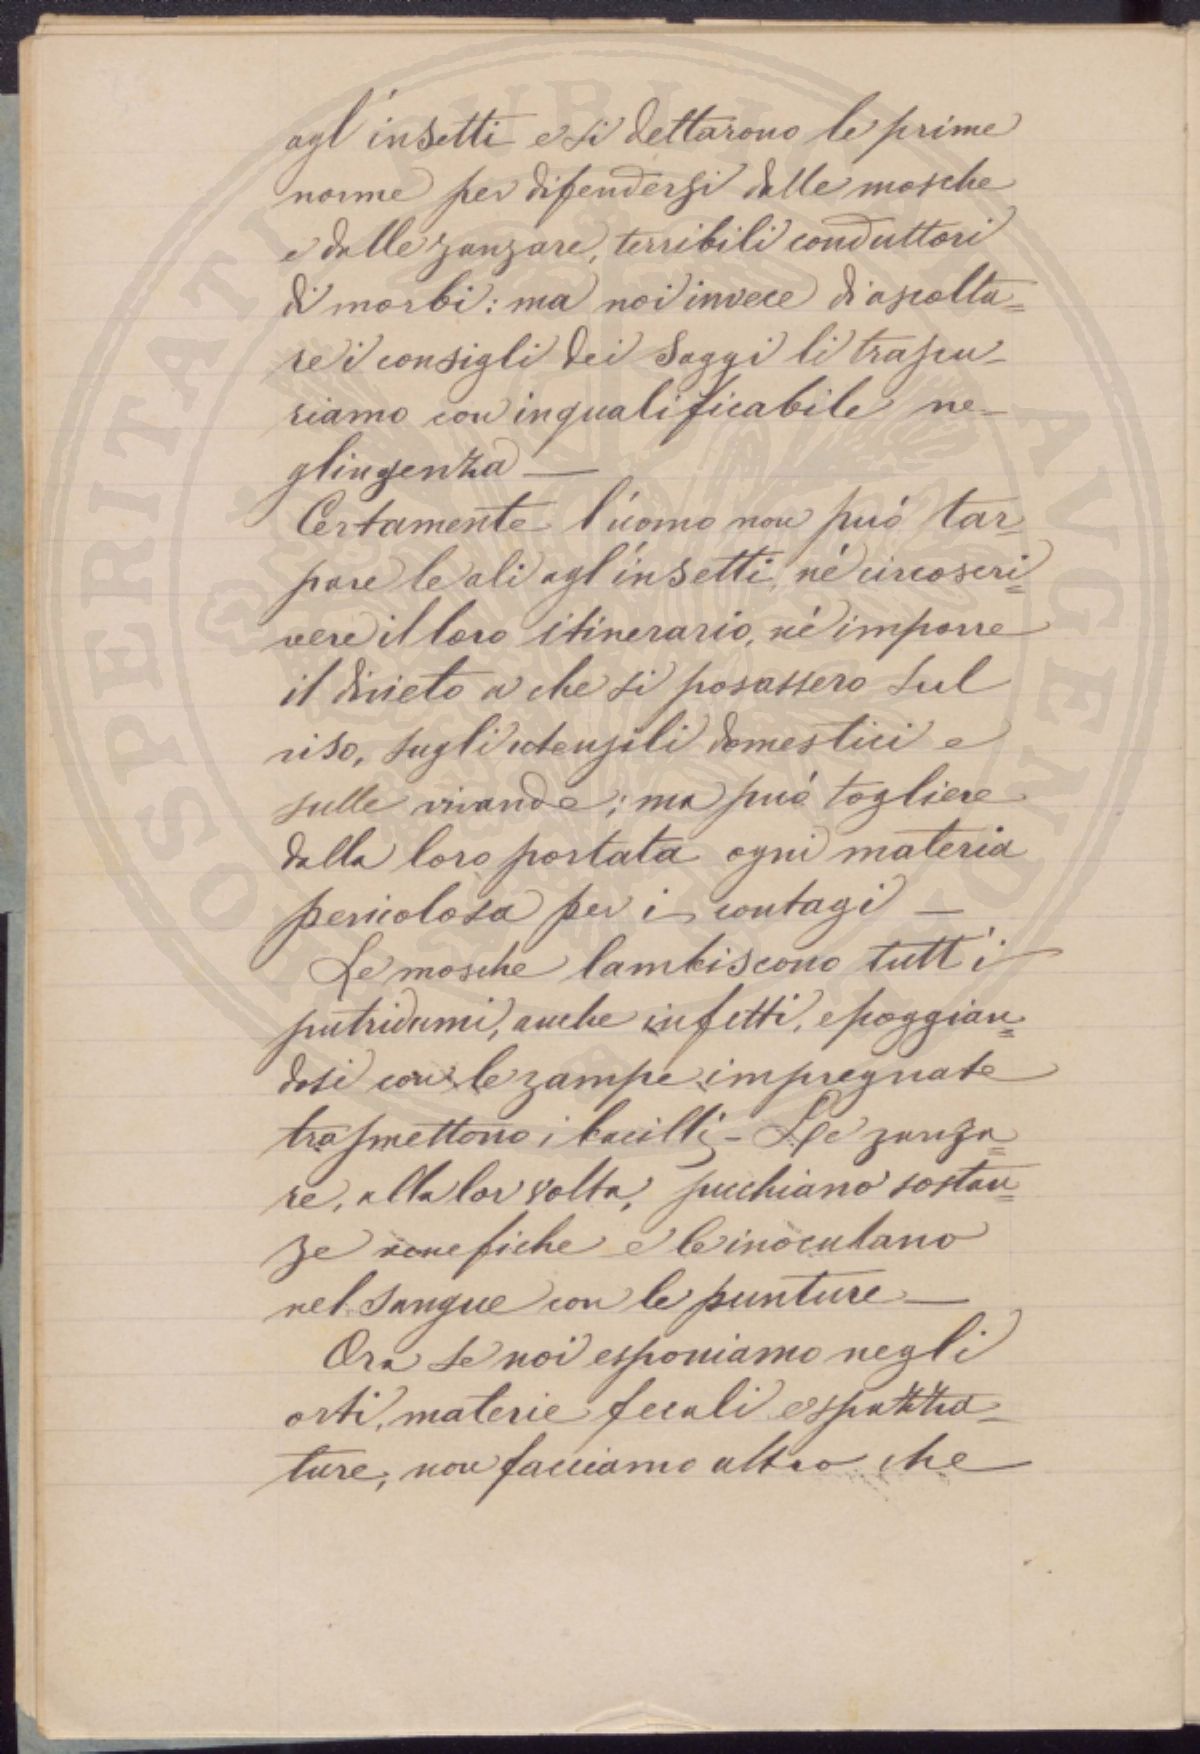 agl'insetti e si dettarono le prime
norme per difendersi dalle mosche
e dalle zanzare, terribili conduttori
di morbi: ma noi invece di ascolta=
re i consigli dei Saggi li trascu-
riamo con inqualificabile ne-
glingenza —
Certamente l'uomo non può tar-
pare le ali agl'insetti, nè circoscri=
vere il loro itinerario, nè imporre
il divieto a che si posassero sul
viso, sugli utensili domestici e
sulle vivande; ma può togliere
dalla loro portata ogni materia
pericolosa per i contagi —
Le mosche lambiscono tutt'i
putridumi, anche infetti, e poggian=
dosi con le zampe impregnate
trasmettono i bacilli - Le zanza=
re, alla lor volta, succhiano sostan=
ze venefiche e le inoculano
nel sangue con le punture —
Ora se noi esponiamo negli
orti, materie fecali e spazza-
ture, non facciamo altro che
SALVTI PVBLICAE TVENDAE PROSPERITATI AVGENDAE